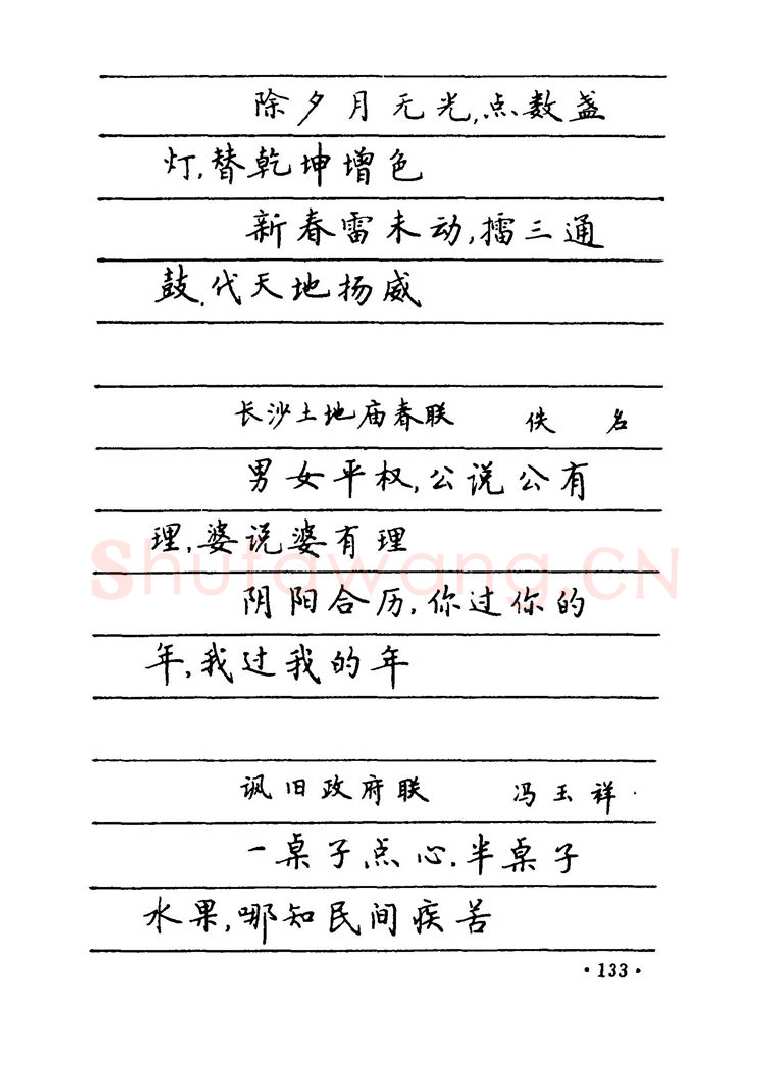 除夕月无光,点数盏
灯,替乾坤增色
新春雷未动,擂三通
鼓,代天地扬威
长沙土地庙春联 佚 名
男女平权,公说公有
理,婆说婆有理
阴阳合历,你过你的
年,我过我的年
shufawang.CN
讽旧政府联 冯玉祥
一桌子点心,半桌子
水果,哪知民间疾苦
·133·